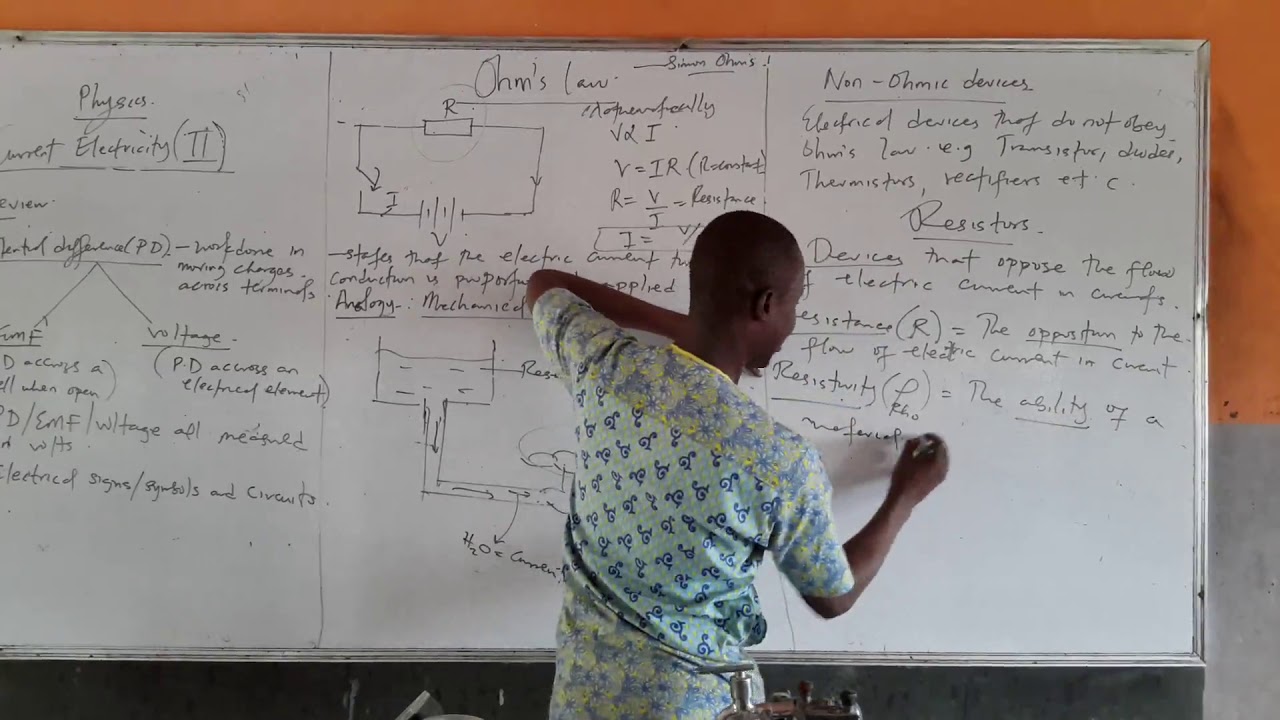 Physics.
urrent Electricity (II)
eview.
tential difference (PD). - workdone in
moving charges
across terminals
EMF
voltage.
D accross a
ell when open)
(P.D accross an
electrical element)
PD/EMF/voltage all measured
volts
Electrical signs/symbols and Circuits.
Ohm's law.
Simon Ohm's
R
I
V
V α I
V = IR (R=constant)
R = V/I = Resistance
I = V/
- states that the electric current
conduction is applied
Analogy: Mechanical
Res
H2O = Current
Non-Ohmic devices
Electrical devices that do not obey
Ohm's law e.g Transistor, diodes,
Thermistors, rectifiers et.c.
Resistors.
Devices that oppose the flow
of electric current in circuits.
esistance (R) = The opposition to the
flow of electric current in circuit
Resistivity (ρ) = The ability of a
Rho
material